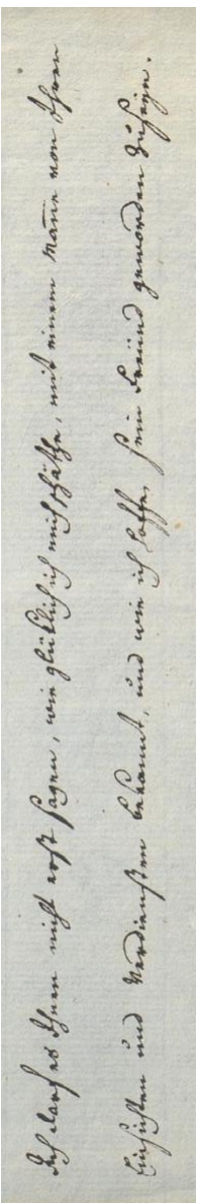 Ich darf es Ihnen nicht erst sagen, wie glüklich ich mich schätze, mit einem Mañe von Ihren
Einsichten und Verdiensten bekannt, und wie ich hoffe, sein Freund geworden zu seyn.